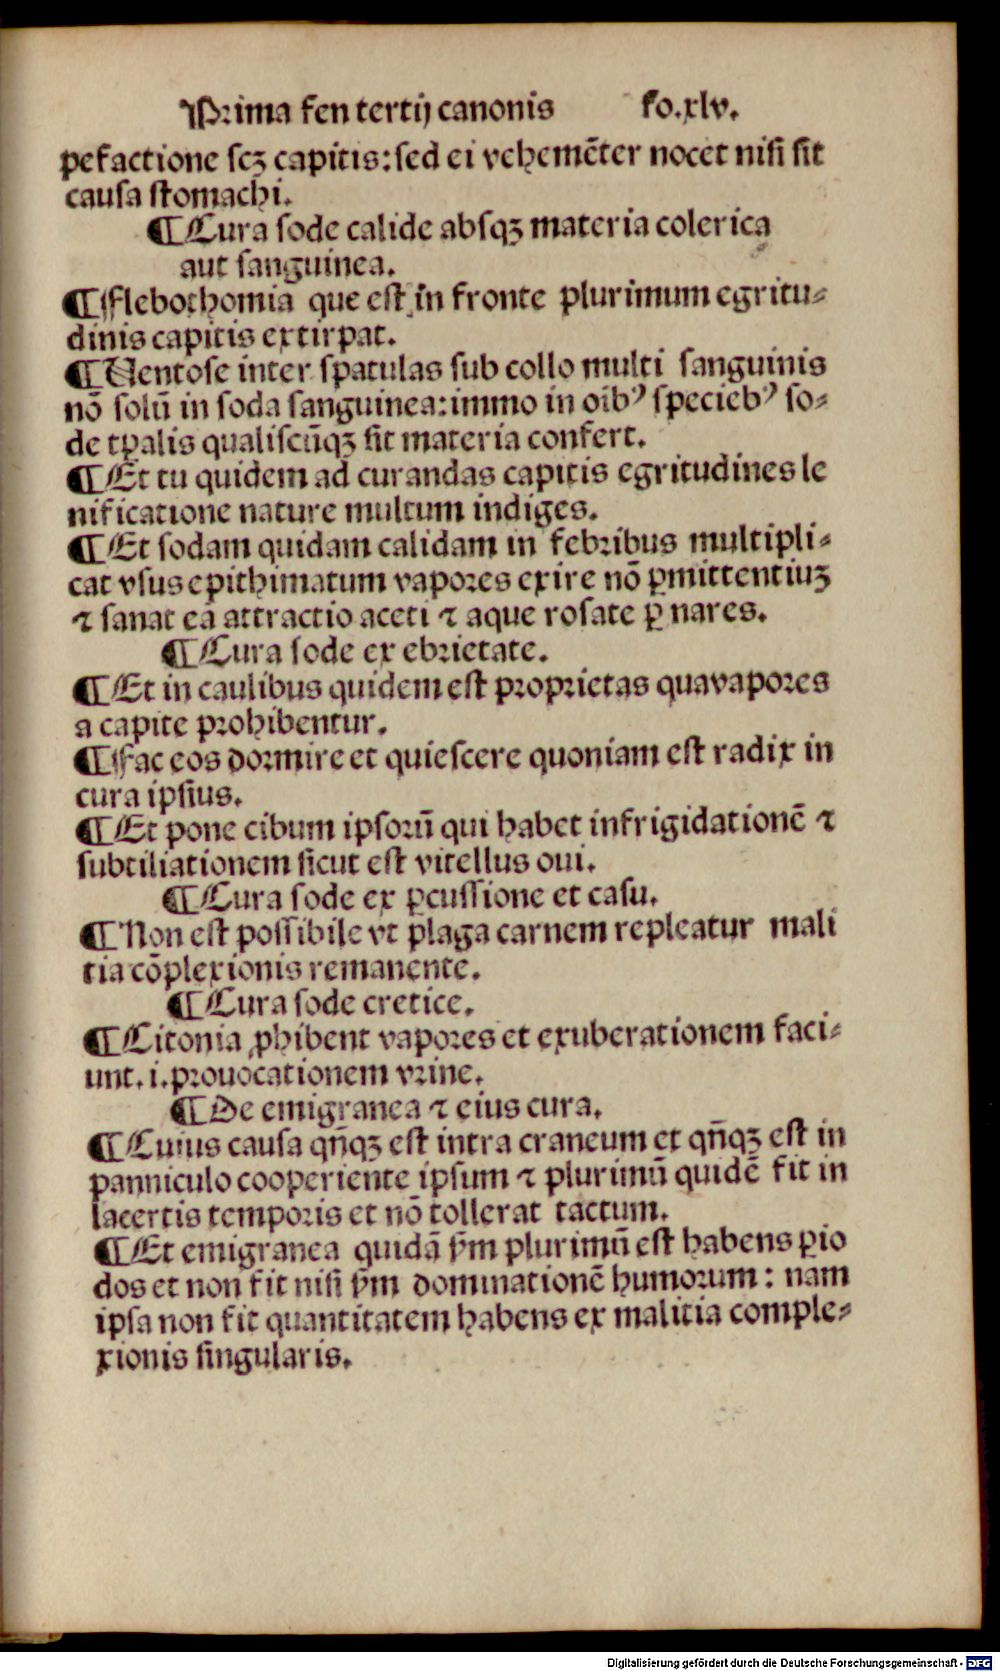 Prima fen tertij canonis fo.xlv.
pefactione scꝫ capitis: sed ei vehemēter nocet nisi sit
causa stomachi.
¶Cura sode calide absqꝫ materia colerica
aut sanguinea.
¶Flebothomia que est in fronte plurimum egritu-
dinis capitis extirpat.
¶Ventose inter spatulas sub collo multi sanguinis
nō solū in soda sanguinea: immo in oībꝰ speciebꝰ so-
de tꝑalis qualiscūqꝫ sit materia confert.
¶Et tu quidem ad curandas capitis egritudines le
nificatione nature multum indiges.
¶Et sodam quidam calidam in febribus multipli-
cat vsus epithimatum vapores exire nō ꝑmittentiuꝫ
⁊ sanat eā attractio aceti ⁊ aque rosate ꝑ nares.
¶Cura sode ex ebrietate.
¶Et in caulibus quidem est proprietas qua vapores
a capite prohibentur.
¶Fac eos dormire et quiescere quoniam est radix in
cura ipsius.
¶Et pone cibum ipsorū qui habet infrigidationē ⁊
subtiliationem sicut est vitellus oui.
¶Cura sode ex ꝑcussione et casu.
¶Non est possibile vt plaga carnem repleatur mali
tia cōplexionis remanente.
¶Cura sode cretice.
¶Citonia ꝓhibent vapores et exuberationem faci-
unt. i. prouocationem vrine.
¶De emigranea ⁊ eius cura.
¶Cuius causa qn̄qꝫ est intra craneum et qn̄qꝫ est in
panniculo cooperiente ipsum ⁊ plurimū quidē fit in
lacertis temporis et nō tollerat tactum.
¶Et emigranea quidā ẜm plurimū est habens ꝑio
dos et non fit nisi ẜm dominationē humorum: nam
ipsa non fit quantitatem habens ex malitia comple-
xionis singularis.
Digitalisierung gefördert durch die Deutsche Forschungsgemeinschaft - DFG